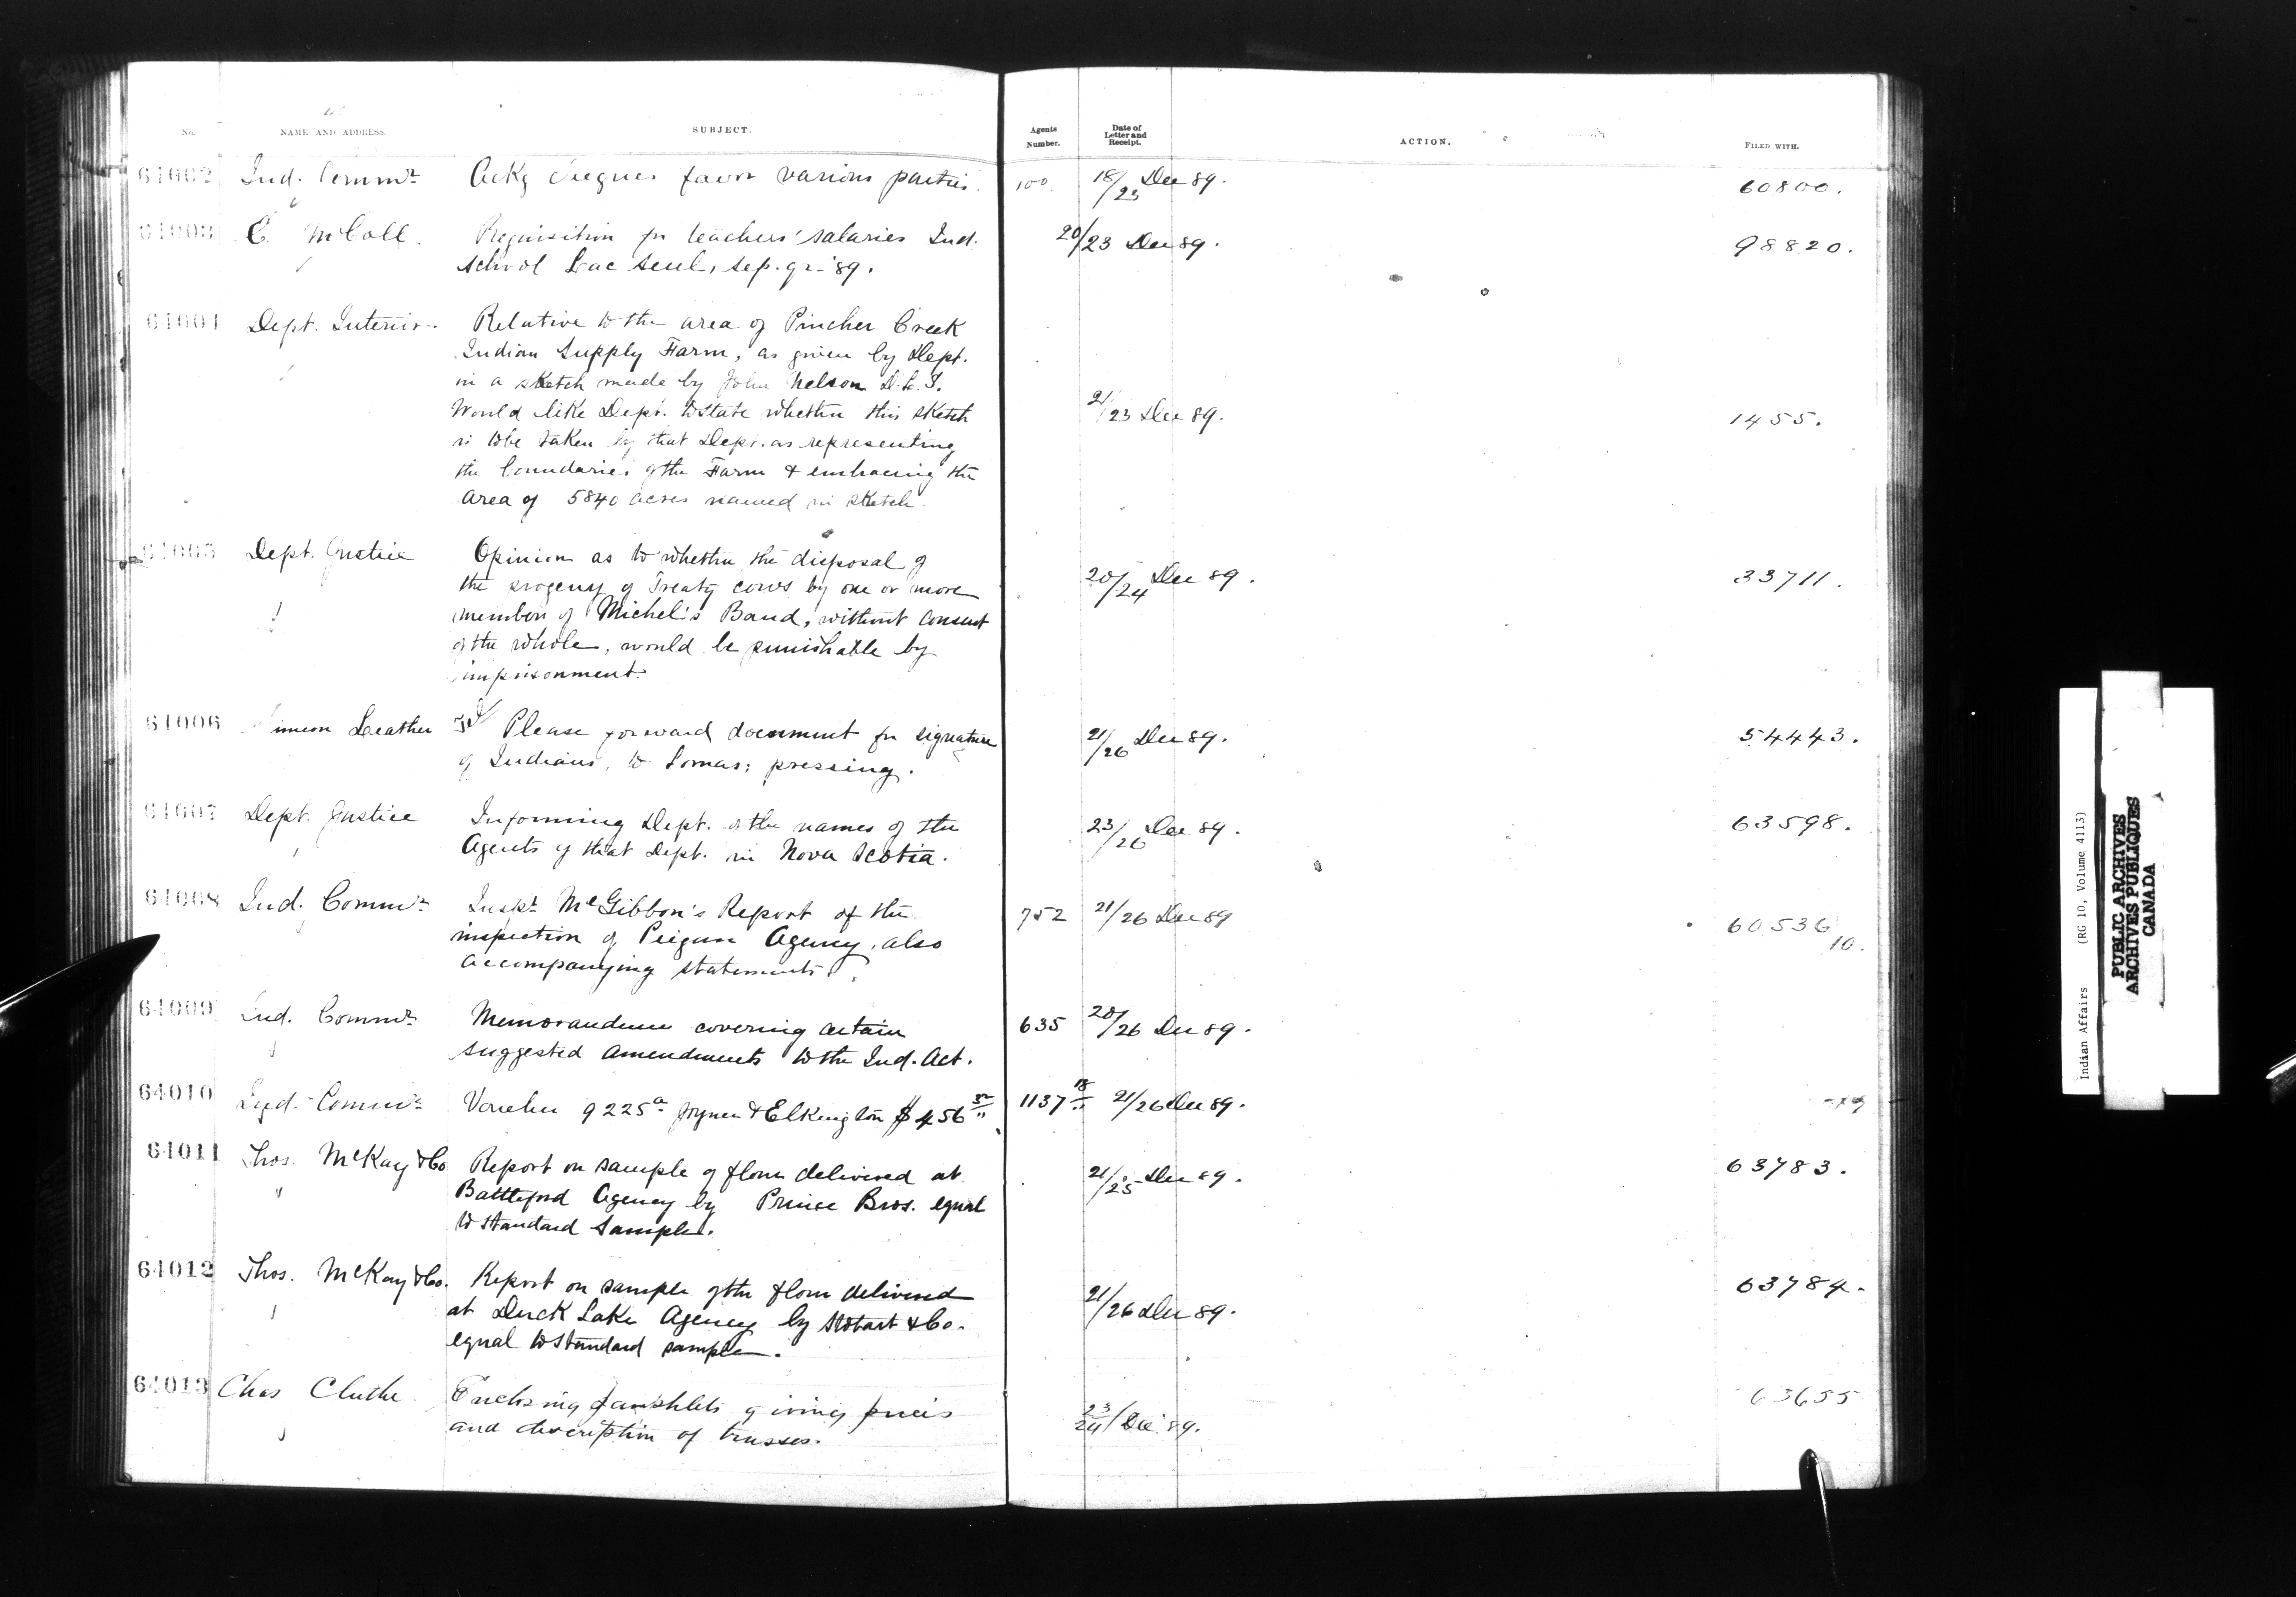 No. NAME AND ADDRESS. SUBJECT. Agents Number. Date of Letter and Receipt. ACTION. FILED WITH.
64002 Ind. Commr. Ackg cheques favor various parties. 100 18/23 Dec 89. 60800.
64003 E. McColl. Requisition for teachers' salaries Ind. 20/23 Dec 89. 98820.
School Lac Seul, Sep. qr. '89.
64004 Dept. Interior. Relative to the area of Pincher Creek
Indian Supply Farm, as given by Dept.
in a sketch made by John Nelson D.L.S.
Would like Dept. to state whether this sketch 21/23 Dec 89. 1455.
is to be taken by that Dept. as representing
the boundaries of the Farm & embracing the
area of 5840 acres named in sketch.
64005 Dept. Justice Opinion as to whether the disposal of
the progeny of Treaty cows by one or more 20/24 Dec 89. 33711.
members of Michel's Band, without consent
of the whole, would be punishable by
imprisonment.
64006 Simeon Leather Please forward document for signature 21/26 Dec 89. 54443.
of Indians, to Lomas; pressing.
64007 Dept. Justice Informing Dept. of the names of the 23/26 Dec 89. 63598.
Agents of that Dept. in Nova Scotia.
64008 Ind. Commr. Inspr. McGibbon's Report of the 752 21/26 Dec 89 60536/10.
inspection of Piegan Agency, also
accompanying statements.
64009 Ind. Commr. Memorandum covering certain 635 20/26 Dec 89.
suggested amendments to the Ind. Act.
64010 Ind. Commr. Voucher 9225a Joyner & Elkington $456 32 1137 18 21/26 Dec 89.
64011 Thos. McKay & Co Report on sample of flour delivered at 21/25 Dec 89. 63783.
Battleford Agency by Prince Bros. equal
to standard sample.
64012 Thos. McKay & Co. Report on sample of the flour delivered 63784.
at Duck Lake Agency by Stobart & Co. 21/26 Dec 89.
equal to standard sample.
64013 Chas Cluthe. Enclosing pamphlets giving prices 23/24 Dec 89. 63655
and description of trusses.
Indian Affairs (RG 10, Volume 4113)
PUBLIC ARCHIVES
ARCHIVES PUBLIQUES
CANADA